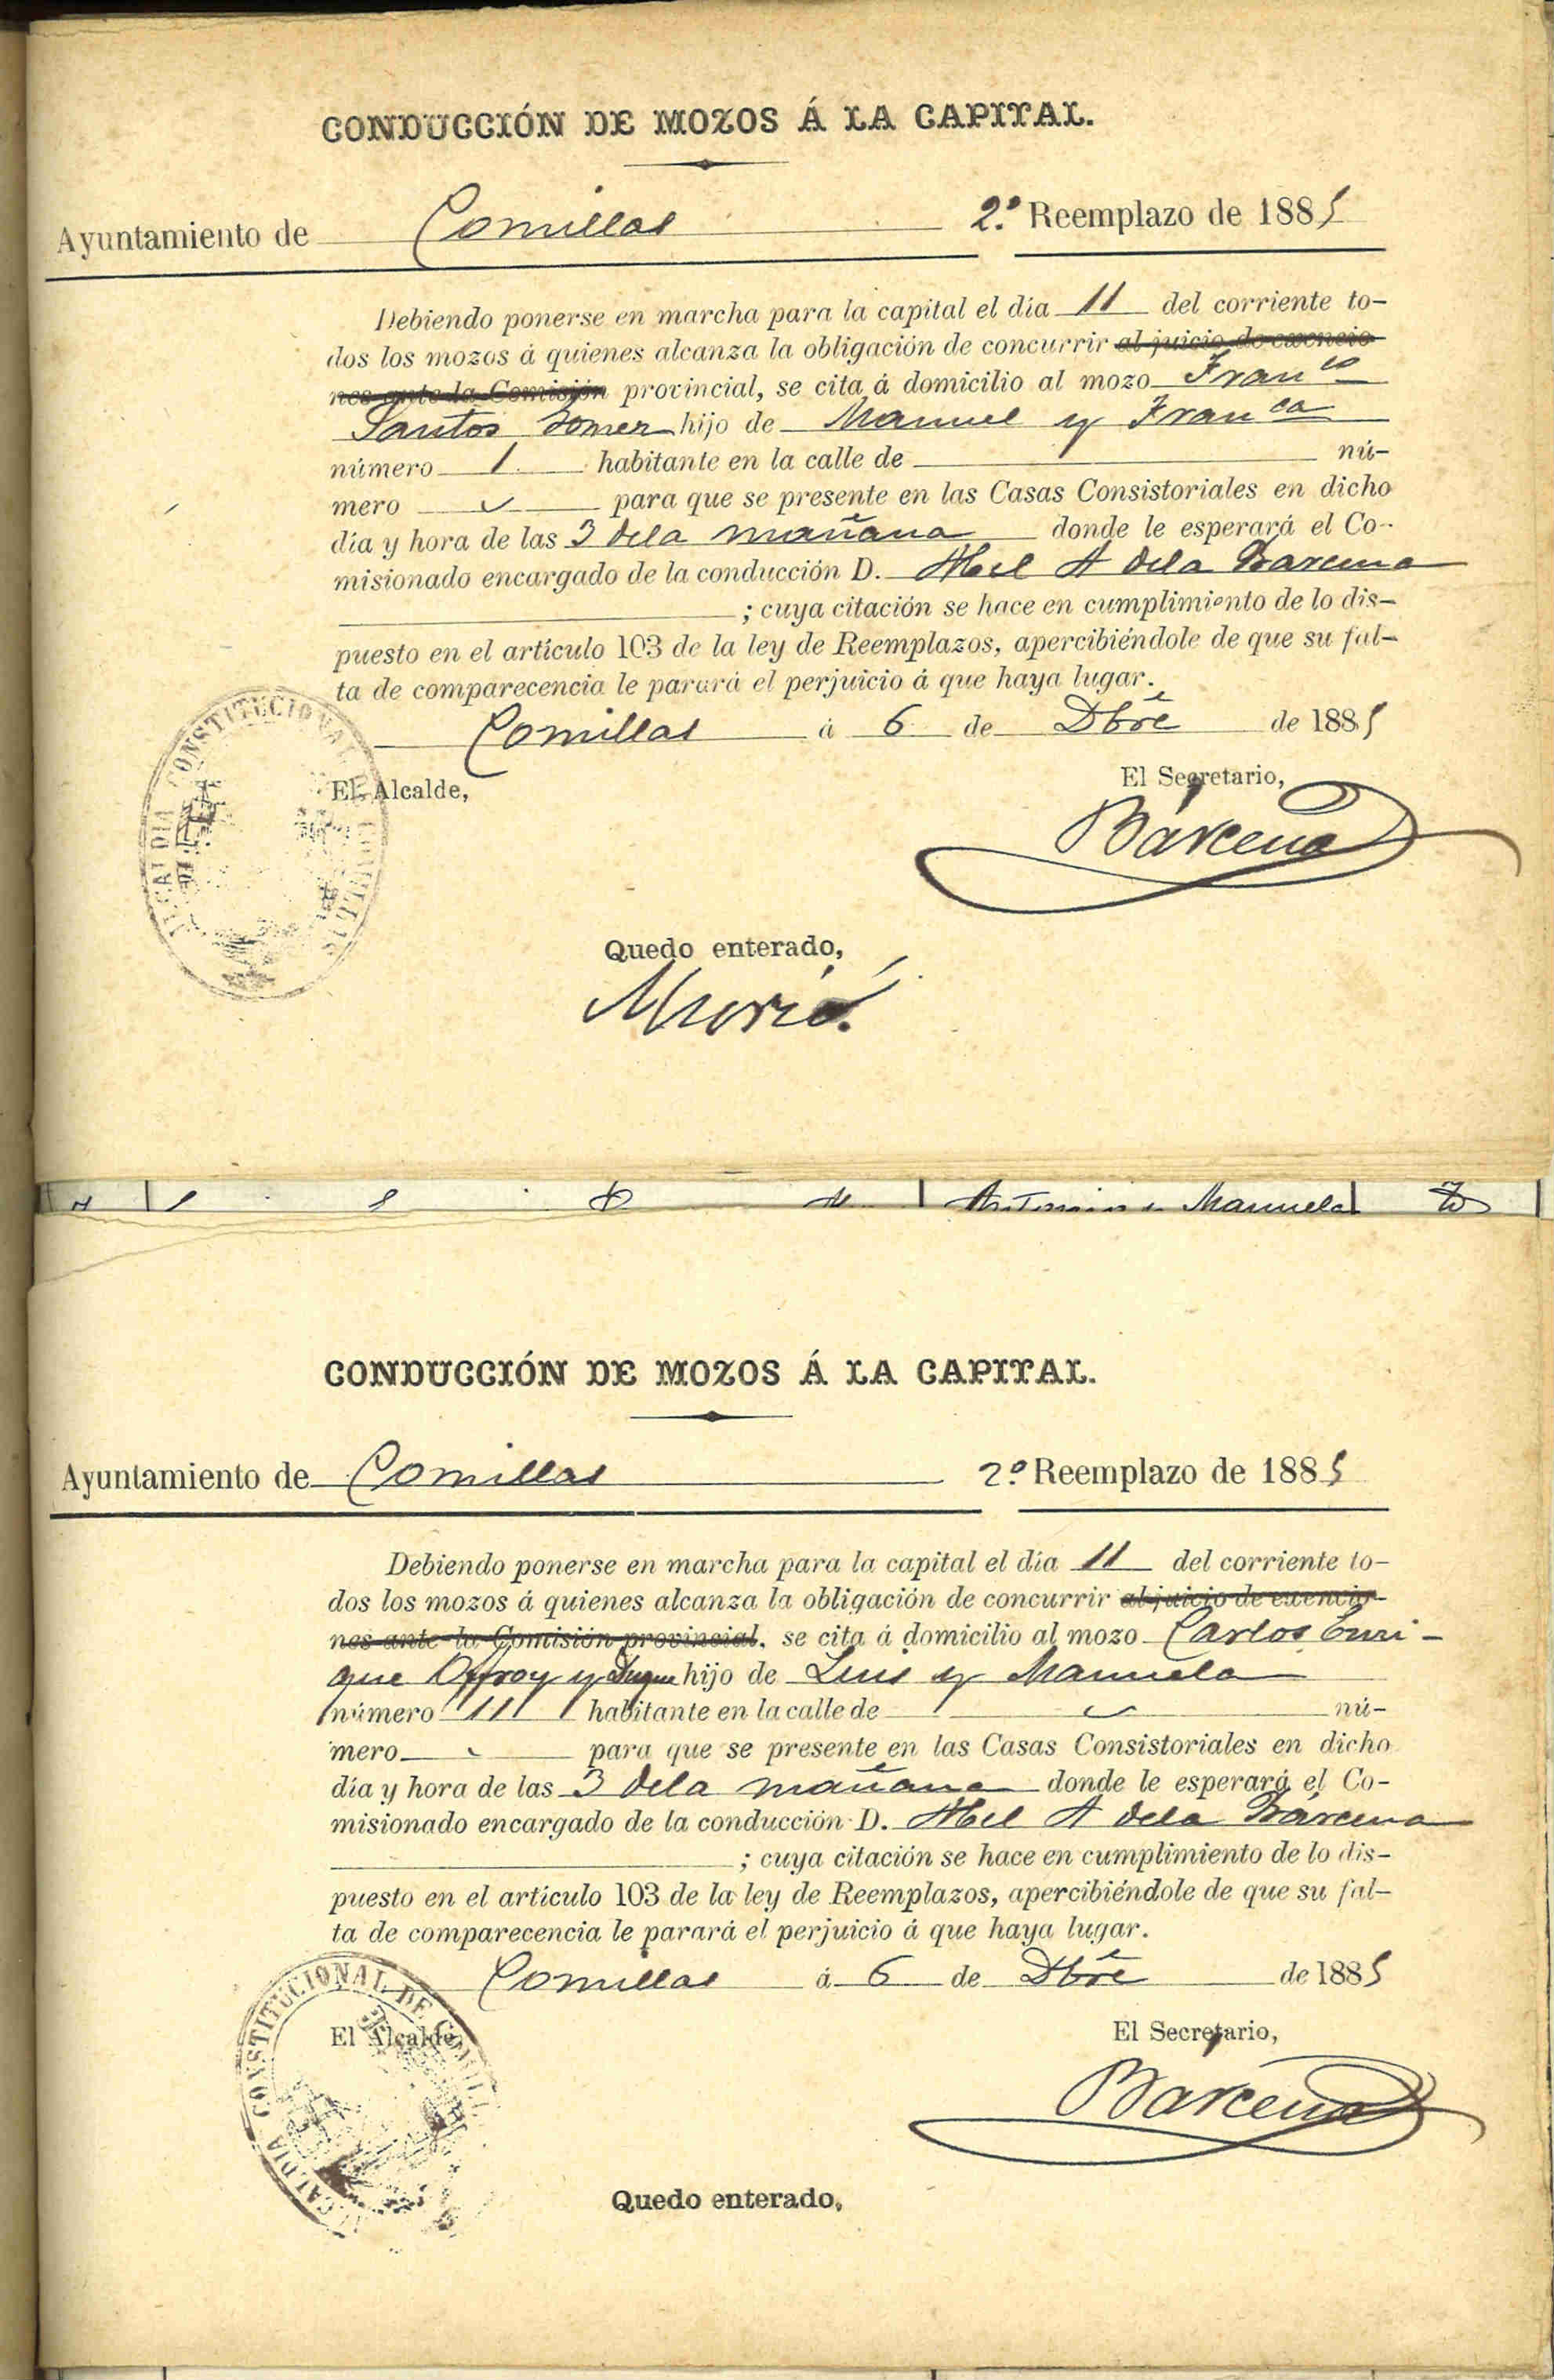 CONDUCCIÓN DE MOZOS Á LA CAPITAL.
Ayuntamiento de Comillas 2.º Reemplazo de 1885
Debiendo ponerse en marcha para la capital el día 11 del corriente to-
dos los mozos á quienes alcanza la obligación de concurrir al juicio de exencio-
nes ante la Comisión provincial, se cita á domicilio al mozo Fran co
Santos hijo de Manuel y Fran ca
número 1 habitante en la calle de nú-
mero para que se presente en las Casas Consistoriales en dicho
día y hora de las 3 dela mañana donde le esperará el Co-
misionado encargado de la conducción D. Abel A dela Bárcena
; cuya citación se hace en cumplimiento de lo dis-
puesto en el artículo 103 de la ley de Reemplazos, apercibiéndole de que su fal-
ta de comparecencia le parará el perjuicio á que haya lugar.
Comillas á 6 de Dbre de 1885
ALCALDIA CONSTITUCIONAL DE COMILLAS
El Alcalde,
El Secretario,
Bárcena
Quedo enterado,
Murió.
Antonio y Manuela
CONDUCCIÓN DE MOZOS Á LA CAPITAL.
Ayuntamiento de Comillas 2.º Reemplazo de 1885
Debiendo ponerse en marcha para la capital el día 11 del corriente to-
dos los mozos á quienes alcanza la obligación de concurrir al juicio de exencio-
nes ante la Comisión provincial, se cita á domicilio al mozo Carlos Enri-
que y hijo de Luis y Manuela
número 11 habitante en la calle de nú-
mero para que se presente en las Casas Consistoriales en dicho
día y hora de las 3 dela mañana donde le esperará el Co-
misionado encargado de la conducción D. Abel A dela Bárcena
; cuya citación se hace en cumplimiento de lo dis-
puesto en el artículo 103 de la ley de Reemplazos, apercibiéndole de que su fal-
ta de comparecencia le parará el perjuicio á que haya lugar.
Comillas á 6 de Dbre de 1885
ALCALDIA CONSTITUCIONAL DE COMILLAS
El Alcalde,
El Secretario,
Bárcena
Quedo enterado,